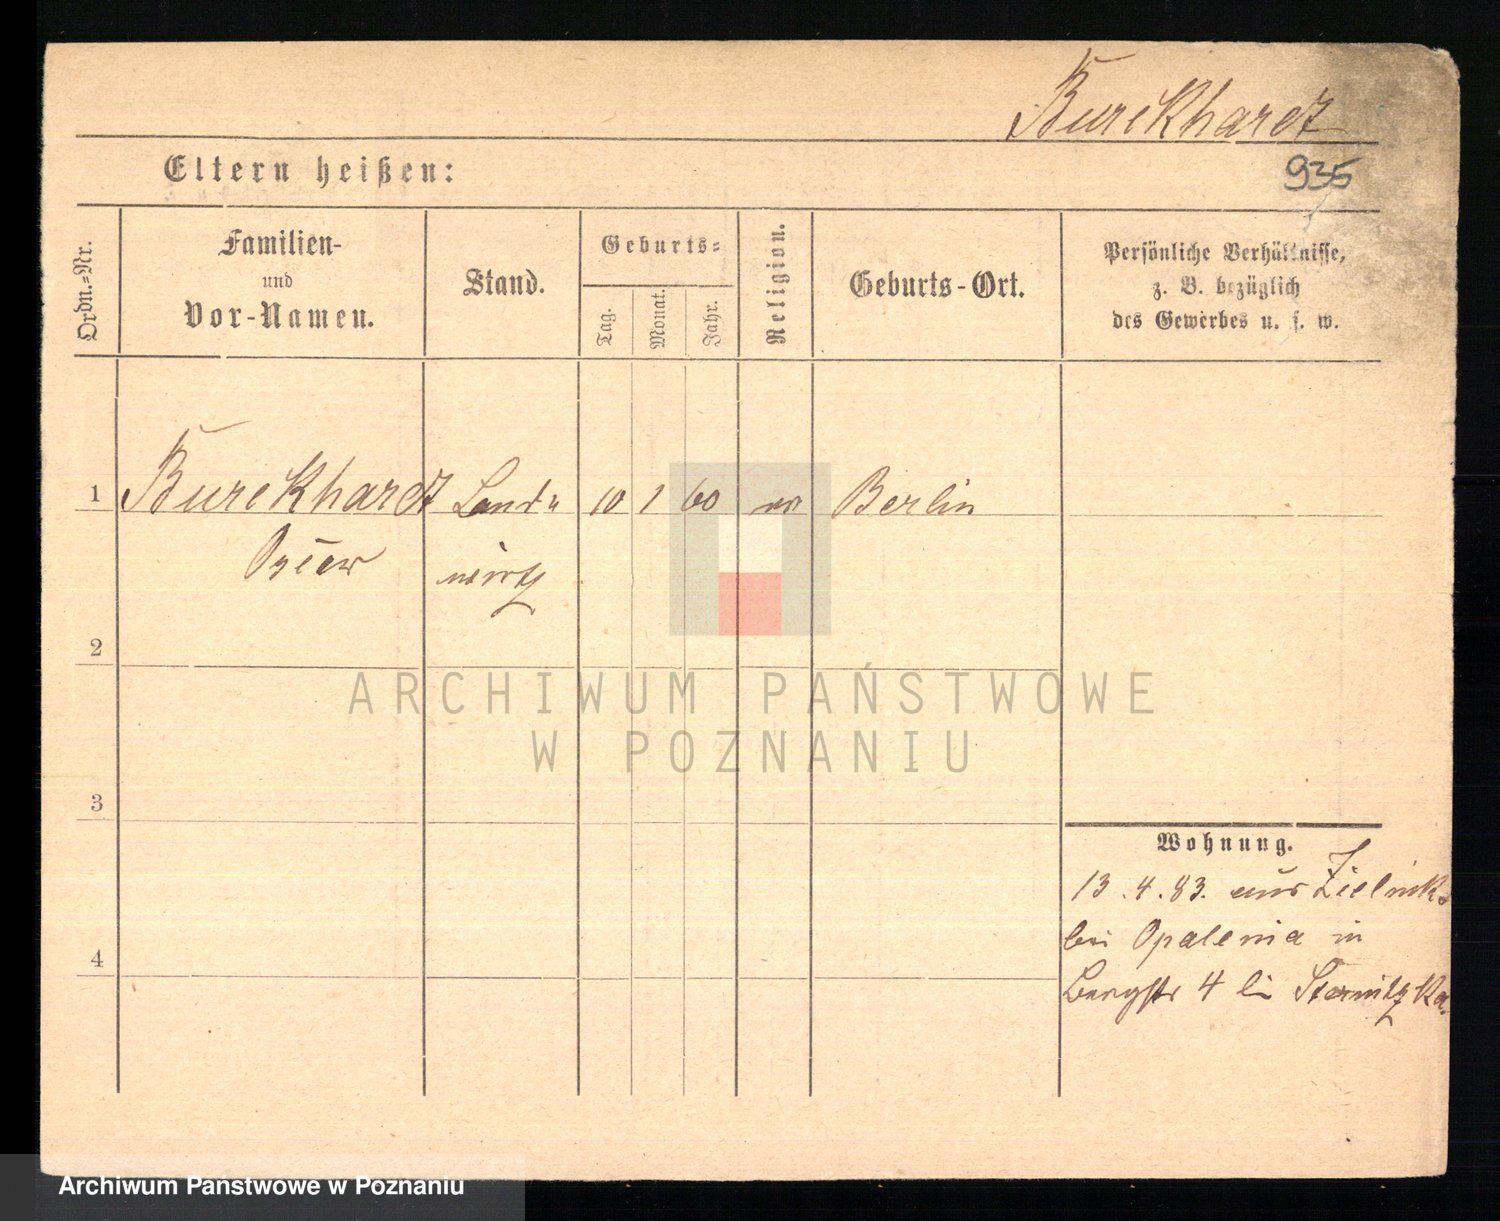 Burckhardt
Eltern heißen:
935
Ordn.=Nr.
Familien-
und
Vor-Namen.
Stand.
Geburts=
Tag.
Monat.
Jahr.
Religion.
Geburts-Ort.
Persönliche Verhältnisse,
z. B. bezüglich
des Gewerbes u. s. w.
1 Burckhardt Land= 10 1 60 ev Berlin
Oscar wirth
2
3
4
Wohnung.
13.4.83. aus
bei Opalenia in
Bergstr 4 bei
ARCHIWUM PAŃSTWOWE
W POZNANIU
Archiwum Państwowe w Poznaniu